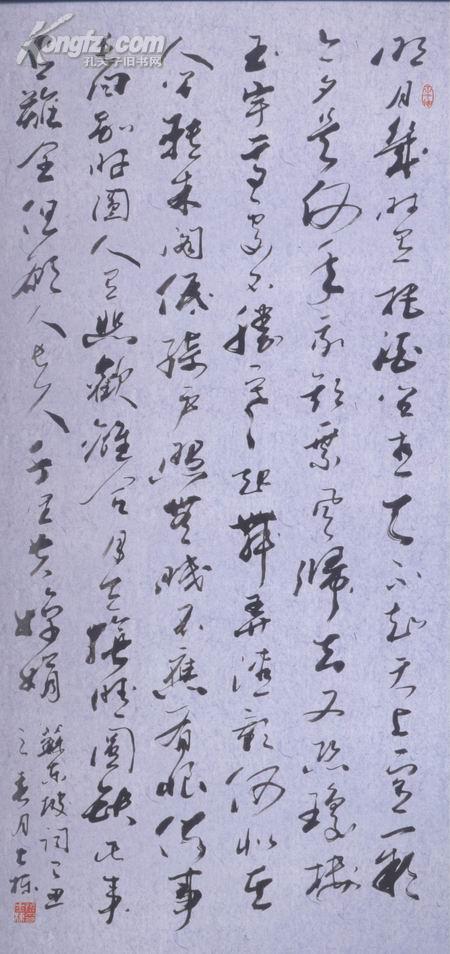 Kongfz.com
孔夫子旧书网
明月幾时有把酒问青天不知天上宫阙
今夕是何年我欲乘风歸去又恐瓊楼
玉宇高处不勝寒起舞弄清影何似在
人间转朱阁低绮户照無眠不應有恨何事
長向别时圆人有悲歡離合月有陰晴圆缺此事
古難全但願人長久千里共婵娟
蘇东坡词乙丑
之春月士